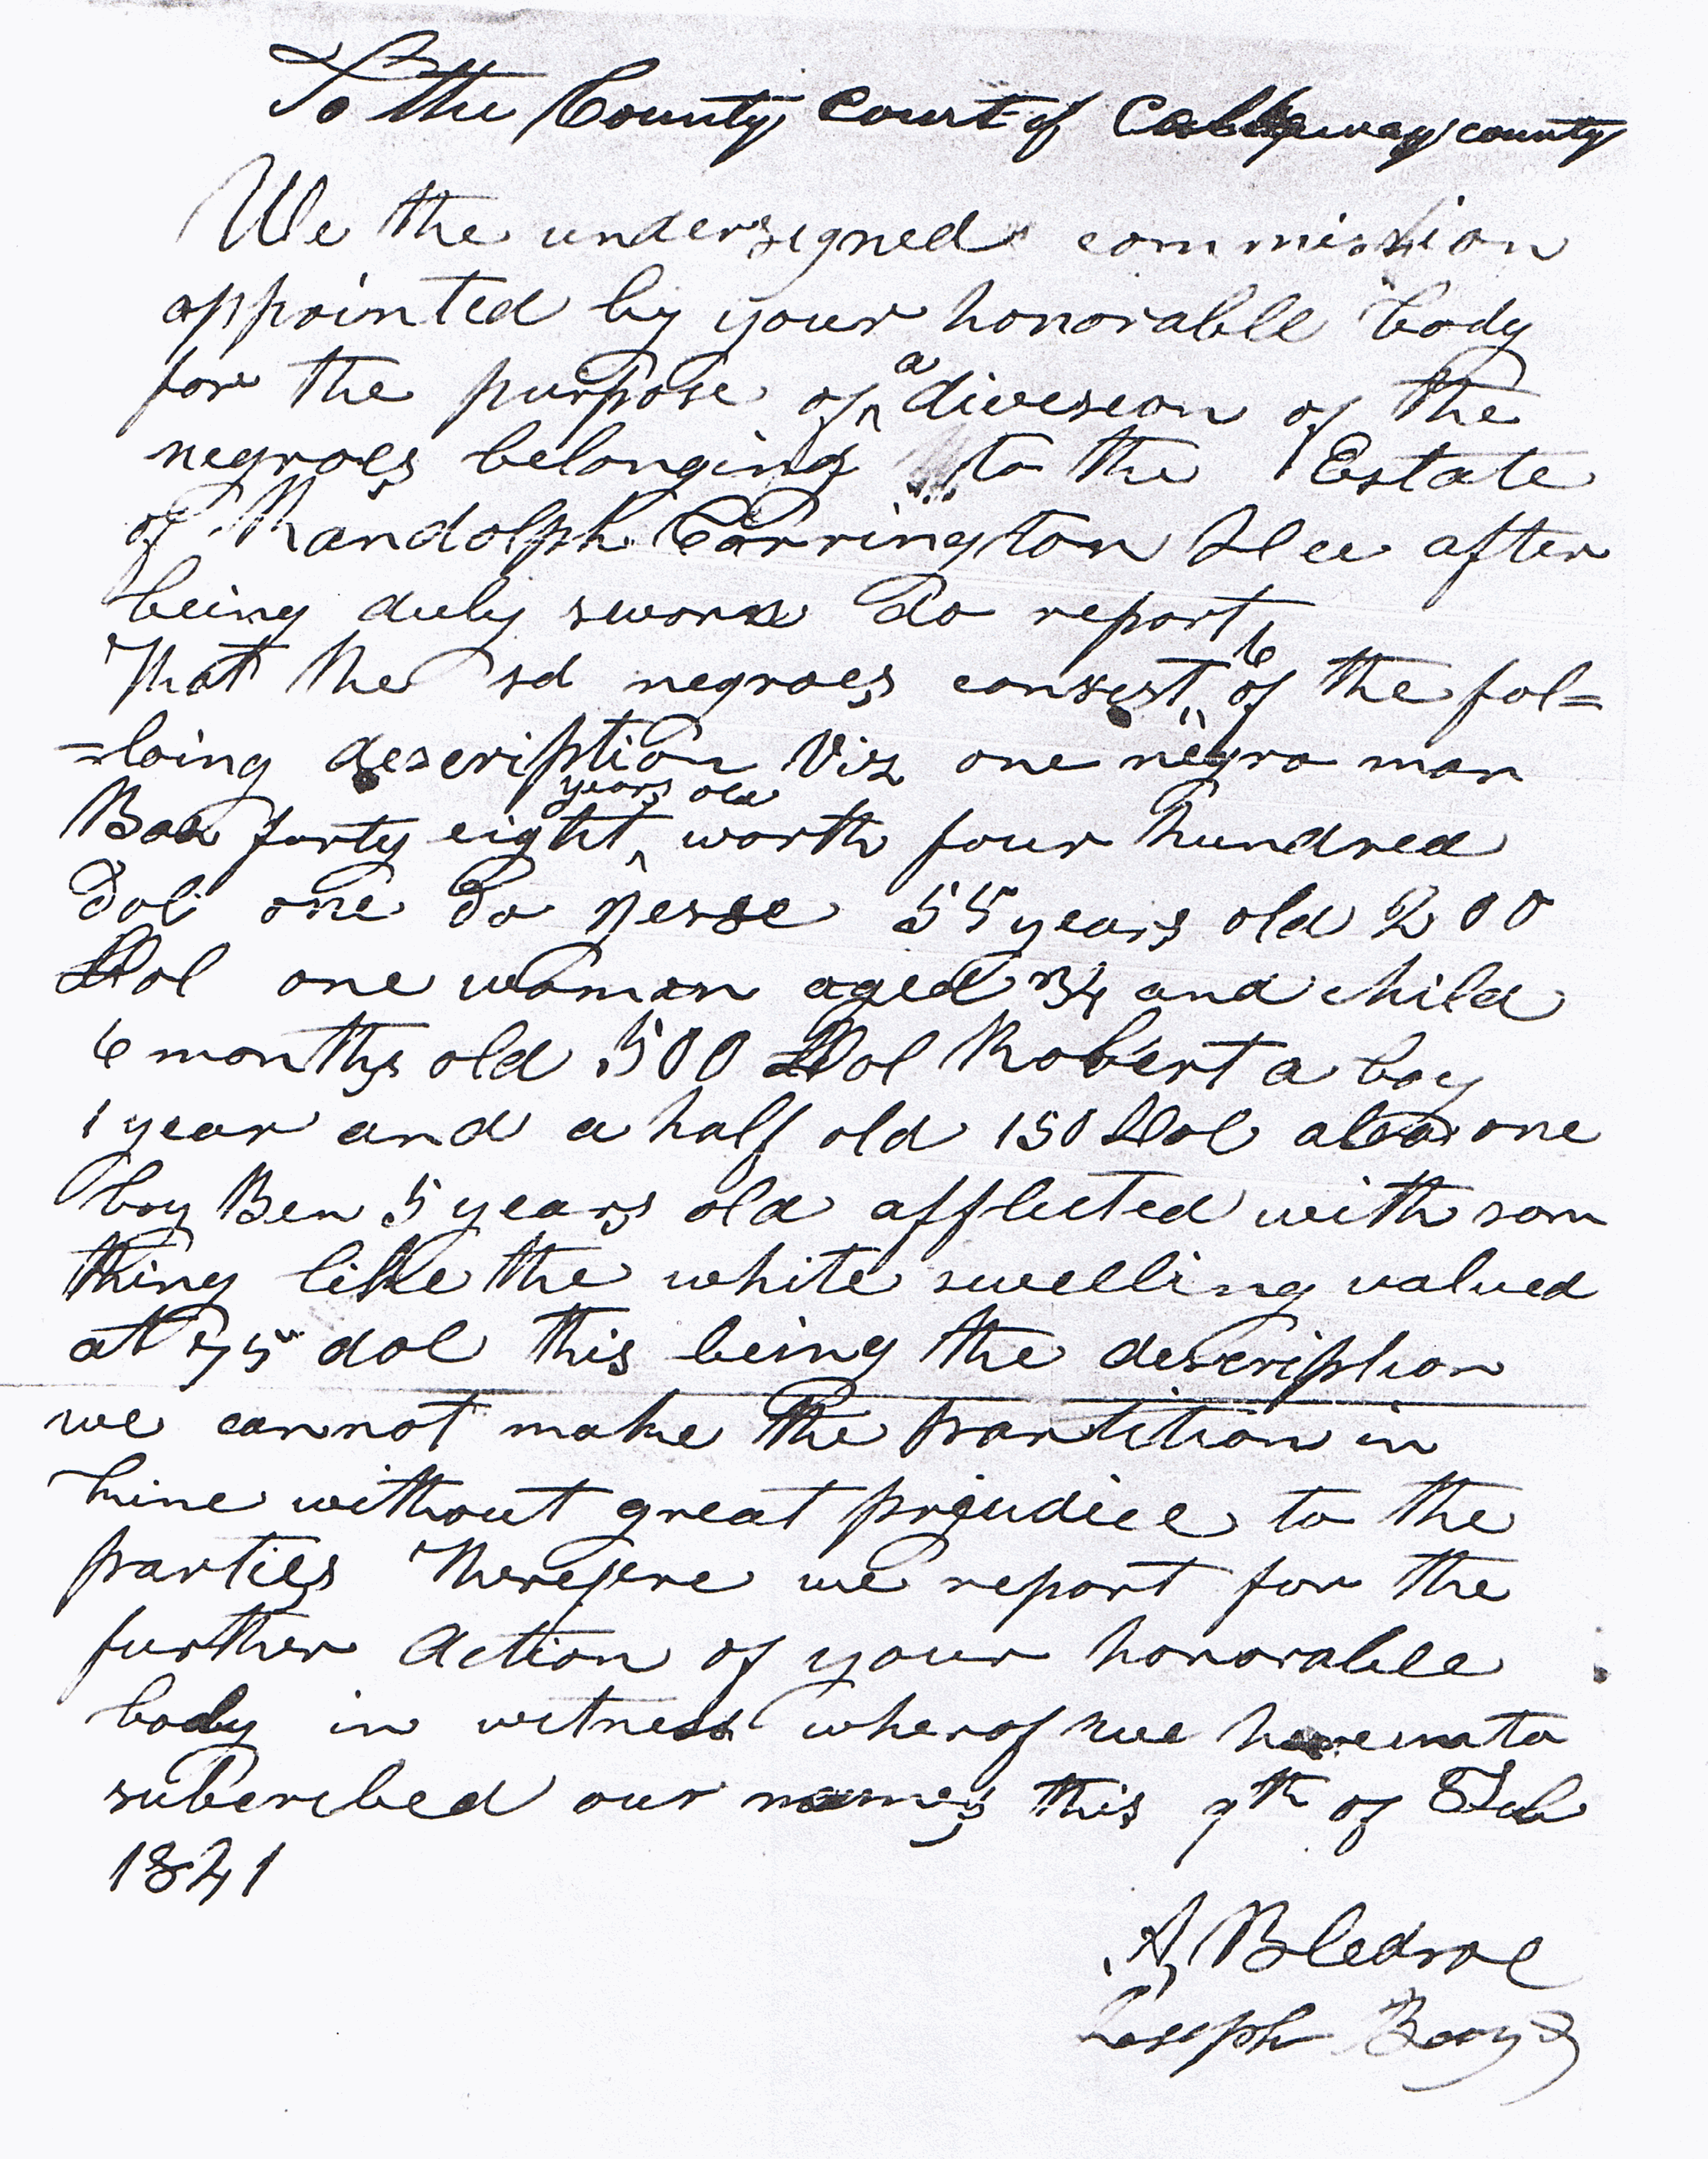 To the County Court of Callaway county
We the undersigned commission
appointed by your honorable body
for the purpose of a division of the
negroes belonging to the Estate
of Randolph Carrington Dec after
being duly sworn do report
That the sd negroes consist 6 of the fol=
=loing description Viz one negro man
forty eight years old worth four hundred
Dol one Do Jesse 55 years old 200
Dol one woman aged 34 and child
6 months old 500 Dol Robert a boy
1 year and a half old 150 Dol also one
boy Ben 5 years old afflicted with som
thing like the white swelling valued
at 75 dol this being the description
we cannot make the partition in
without great prejudice to the
parties Therefore we report for the
further Action of your honorable
body in witness wherof we hereunto
subscribed our names this 9th of Feb
1841
A Bledsoe
Joseph